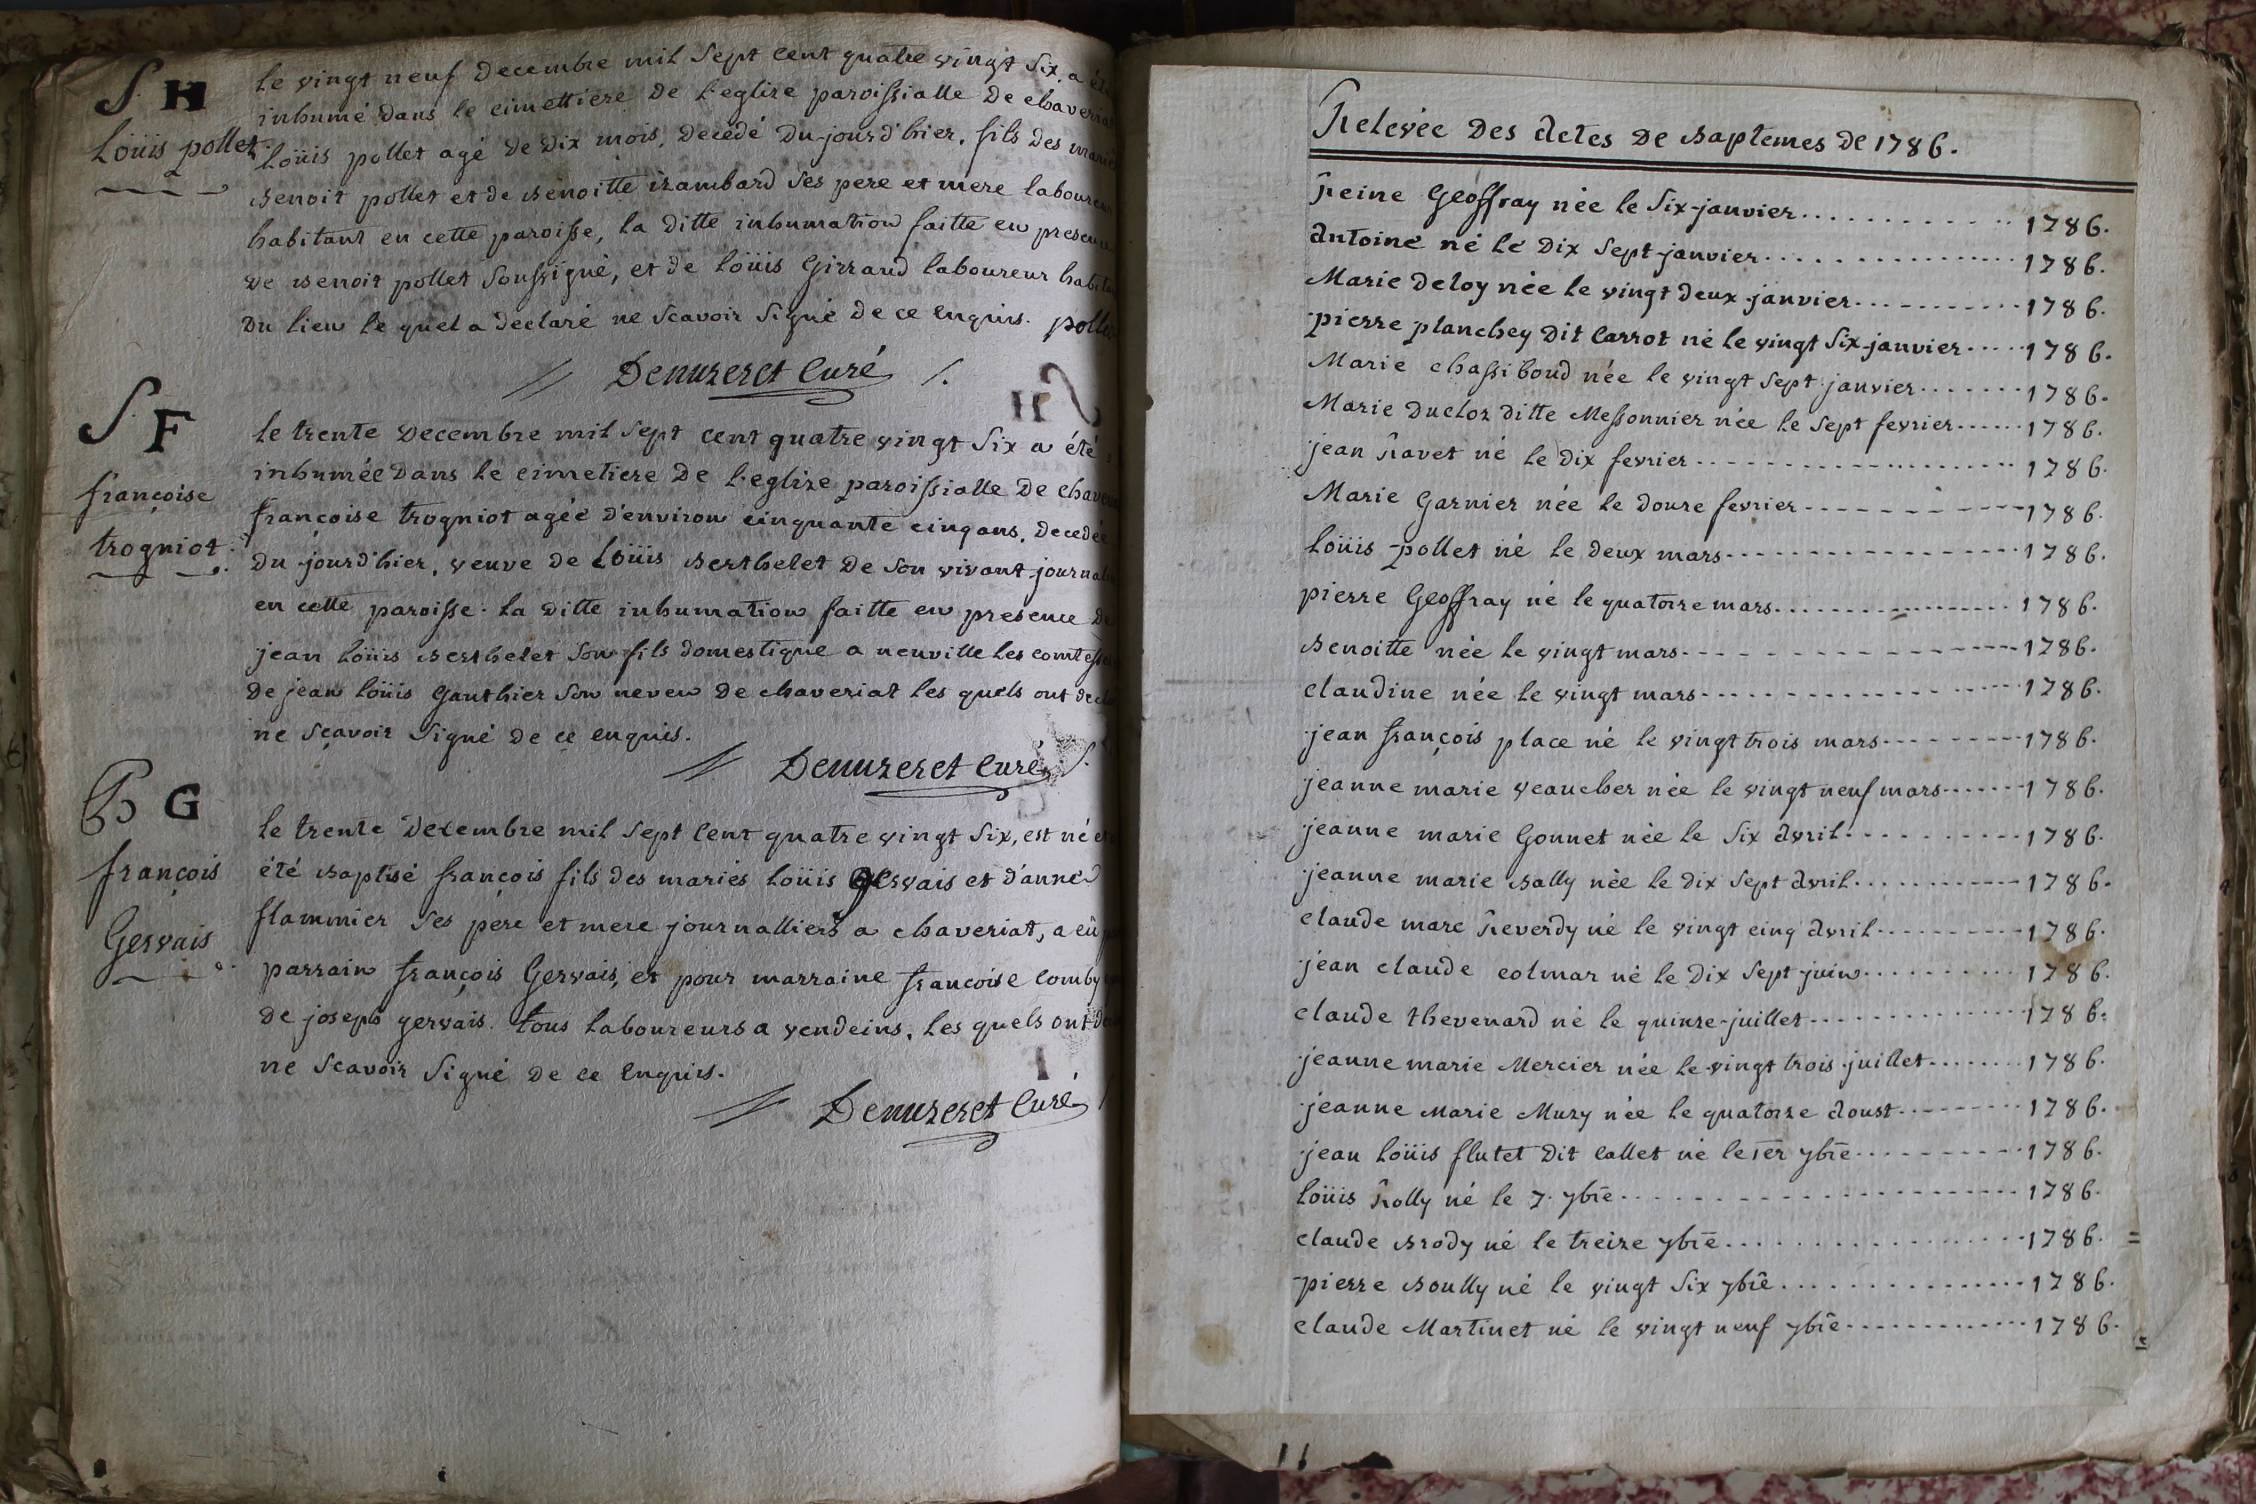 S. H
Loüis pollet.
le vingt neuf Decembre mil Sept Cent quatre vingt Six, a été
inhumé dans le cimettiere De l'eglize paroissialle De chaveriat
Loüis pollet agé De Dix mois, Decedé Du-jourd'hier, fils des mariés
Benoit pollet et de Benoitte izambard Ses pere et mere laboureurs
habitant en cette paroisse, la Ditte inhumation faitte en presence
De Benoit pollet Soussigné, et de Loüis Girraud laboureur habitant
Du lieu le quel a Declaré ne Scavoir Signé De ce Enquis. pollet
Denuzeret Curé
S. F
françoise
trogniot.
le trente Decembre mil Sept Cent quatre vingt Six a été
inhumée Dans le cimetiere De l'eglize paroissialle De chaveriat
françoise trogniot agée D'environ cinquante cinq ans, Decedée
Du-jourd'hier, veuve de Loüis Berthelet De Son vivant journalier
en cette paroisse. la Ditte inhumation faitte en presence De
jean Loüis Berthelet Son fils domestique a neuville les comtesses
De jean Loüis Gauthier Son neveu De chaveriat les quels ont declaré
ne sçavoir Signé De ce enquis.
Denuzeret Curé
B G
françois
Gervais
le trente Dexembre mil Sept Cent quatre vingt Six, est né et a
été Baptisé françois fils des mariés Loüis Gervais et D'anne
flammier Ses pere et mere journalliers a chaveriat, a eû pour
parrain françois Gervais, et pour marraine francoise Comby
De joseph gervais. tous laboureurs a vendeins, les quels ont
ne Scavoir Signé De ce Enquis.
Denuzeret Curé
Relevée Des Actes De Baptemes De 1786.
Reine Geoffray née le Six-janvier 1786.
Antoine né le Dix Sept-janvier 1786.
Marie Deloy née le vingt Deux janvier 1786.
pierre planchey Dit Carrot né le vingt Six-janvier 1786.
Marie chassiboud née le vingt Sept janvier 1786.
Marie Ducloz Ditte Messonnier née le Sept fevrier 1786.
jean Ravet né le Dix fevrier 1786.
Marie Garnier née le Douze fevrier 1786.
Loüis pollet né le Deux mars 1786.
pierre Geoffray né le quatorze mars 1786.
Benoitte née le vingt mars 1786.
claudine née le vingt mars 1786.
jean françois place né le vingt trois mars 1786.
jeanne marie veaucher née le vingt neuf mars 1786.
jeanne marie Gonnet née le Six Avril 1786.
jeanne marie Bally née le Dix Sept Avril 1786.
claude marc Reverdy né le vingt cinq Avril 1786.
jean claude colmar né le Dix Sept juin 1786.
claude thevenard né le quinze-juillet 1786.
jeanne marie Mercier née le vingt trois juillet 1786.
jeanne Marie Muzy née le quatorze Aoust 1786.
jean Loüis flutet Dit Callet né le 1er 7bre 1786.
Loüis Rolly né le 7. 7bre 1786.
claude Brody né le treize 7bre 1786.
pierre Boully né le vingt Six 7bre 1786.
claude Martinet né le vingt neuf 7bre 1786.